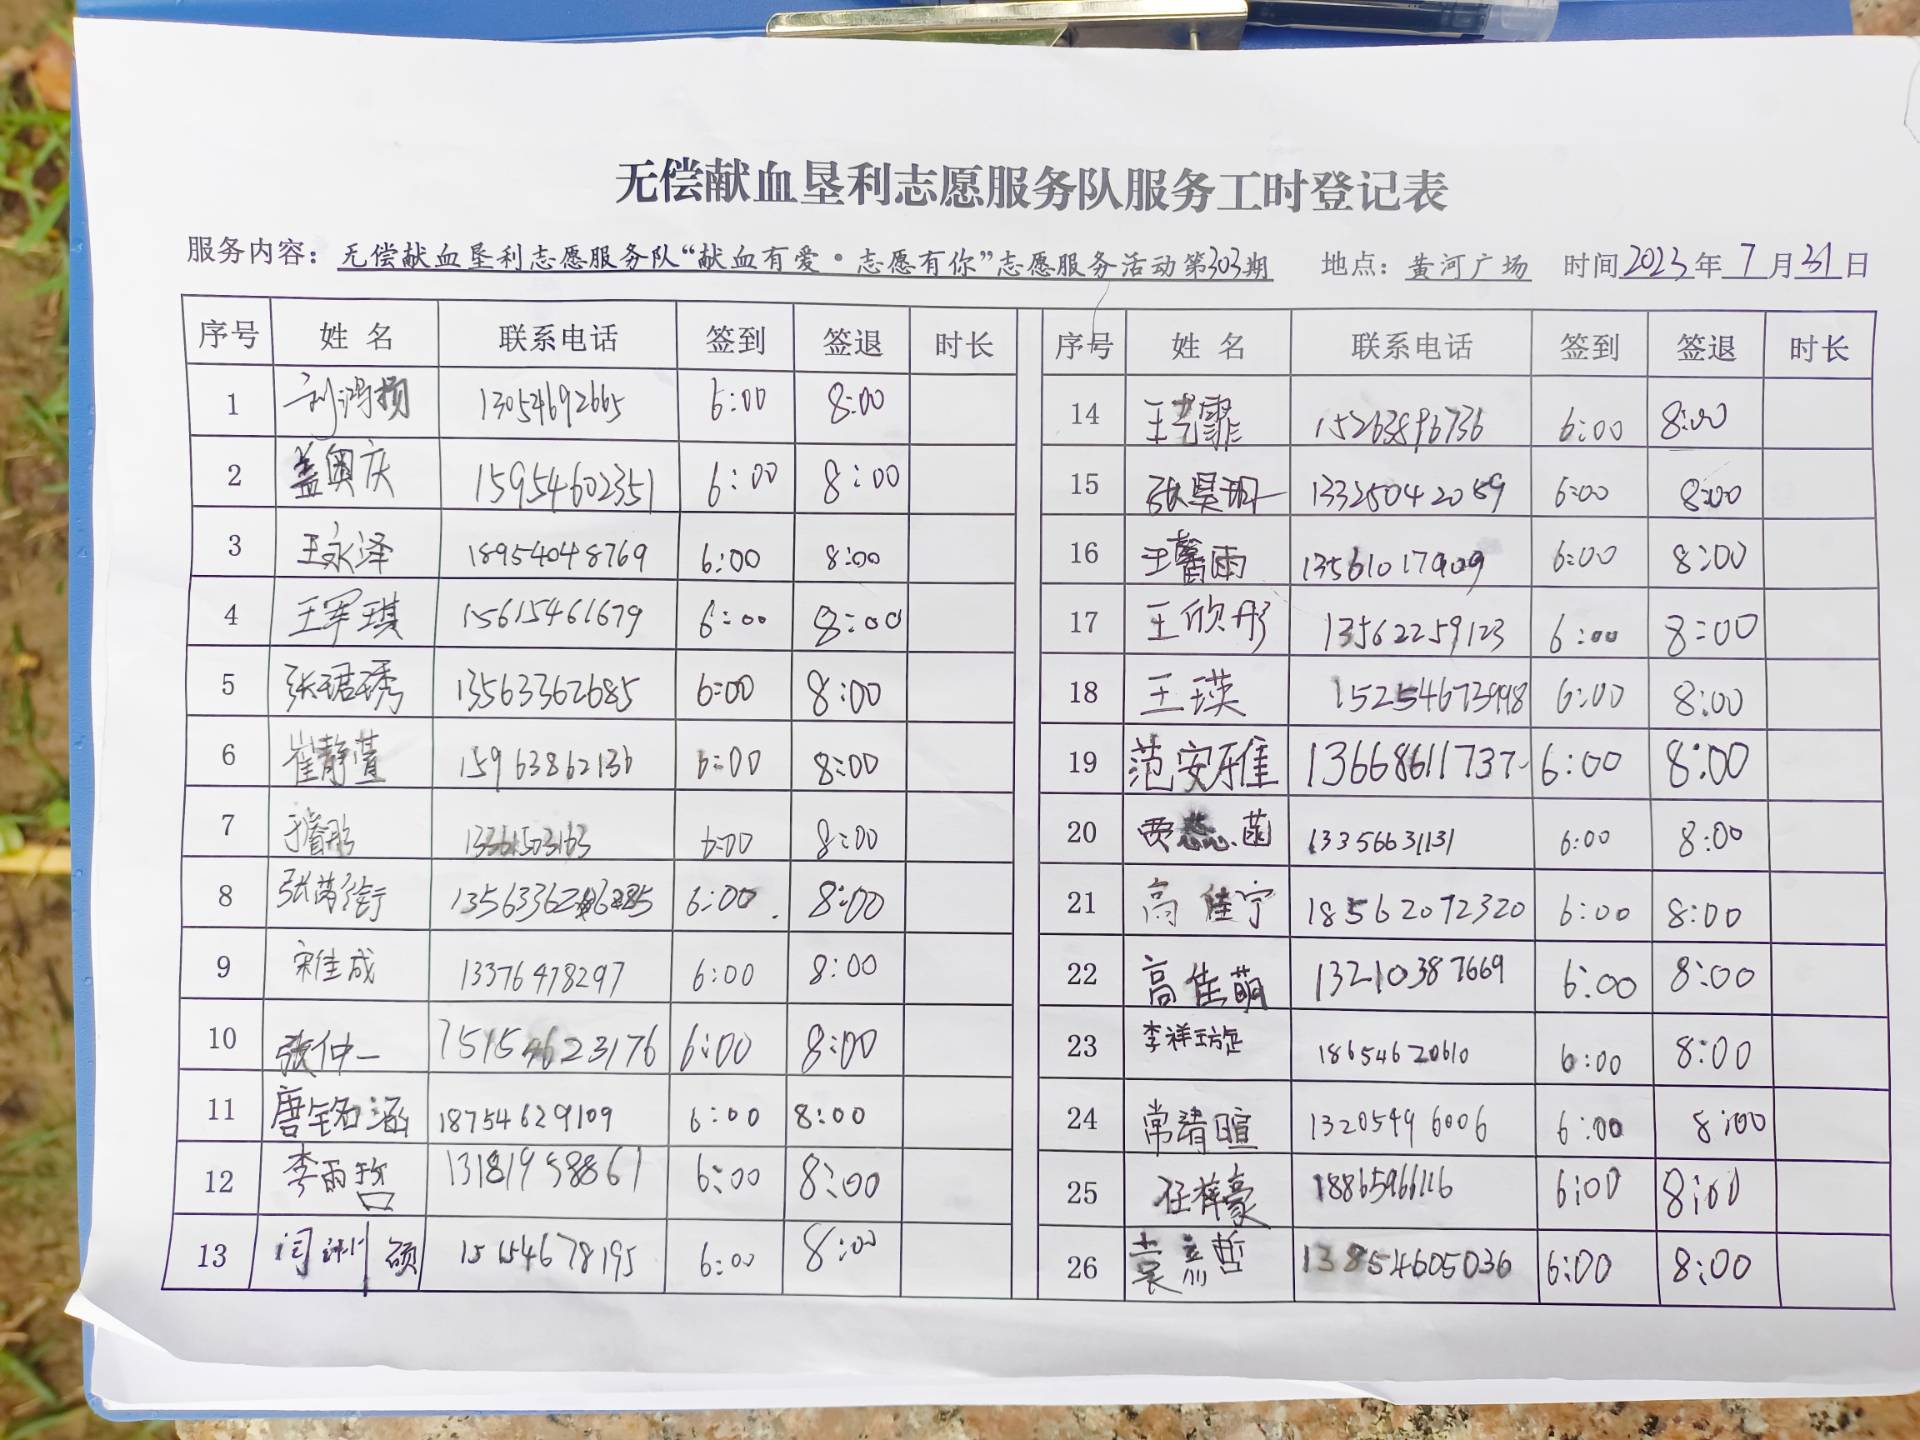 无偿献血垦利志愿服务队服务工时登记表
服务内容：无偿献血垦利志愿服务队“献血有爱·志愿有你”志愿服务活动第303期 地点：黄河广场 时间2023年7月31日
序号 姓名 联系电话 签到 签退 时长 序号 姓名 联系电话 签到 签退 时长
1 13054692665 6:00 8:00 14 王艺霏 15263896736 6:00 8:00
2 盖奥庆 15954602351 6:00 8:00 15 张昊珊 13325042059 6:00 8:00
3 王永泽 18954048769 6:00 8:00 16 王馨雨 13561017909 6:00 8:00
4 王军琪 15615461679 6:00 8:00 17 王欣彤 13562259123 6:00 8:00
5 张珺琇 13563362685 6:00 8:00 18 王瑛 6:00 8:00
6 崔静萱 15963862136 6:00 8:00 19 范安雅 13668611737 6:00 8:00
7 于睿彤 6:00 8:00 20 贾蕊菡 13356631131 6:00 8:00
8 6:00 8:00 21 高佳宁 18562072320 6:00 8:00
9 宋佳成 13376478297 6:00 8:00 22 高佳萌 13210387669 6:00 8:00
10 张仲一 15154623176 6:00 8:00 23 李祥璇 18654620610 6:00 8:00
11 唐铭涵 18754629109 6:00 8:00 24 常清暄 13205496006 6:00 8:00
12 李雨哲 13181958861 6:00 8:00 25 任梓豪 18865966116 6:00 8:00
13 15154678195 6:00 8:00 26 13854605036 6:00 8:00